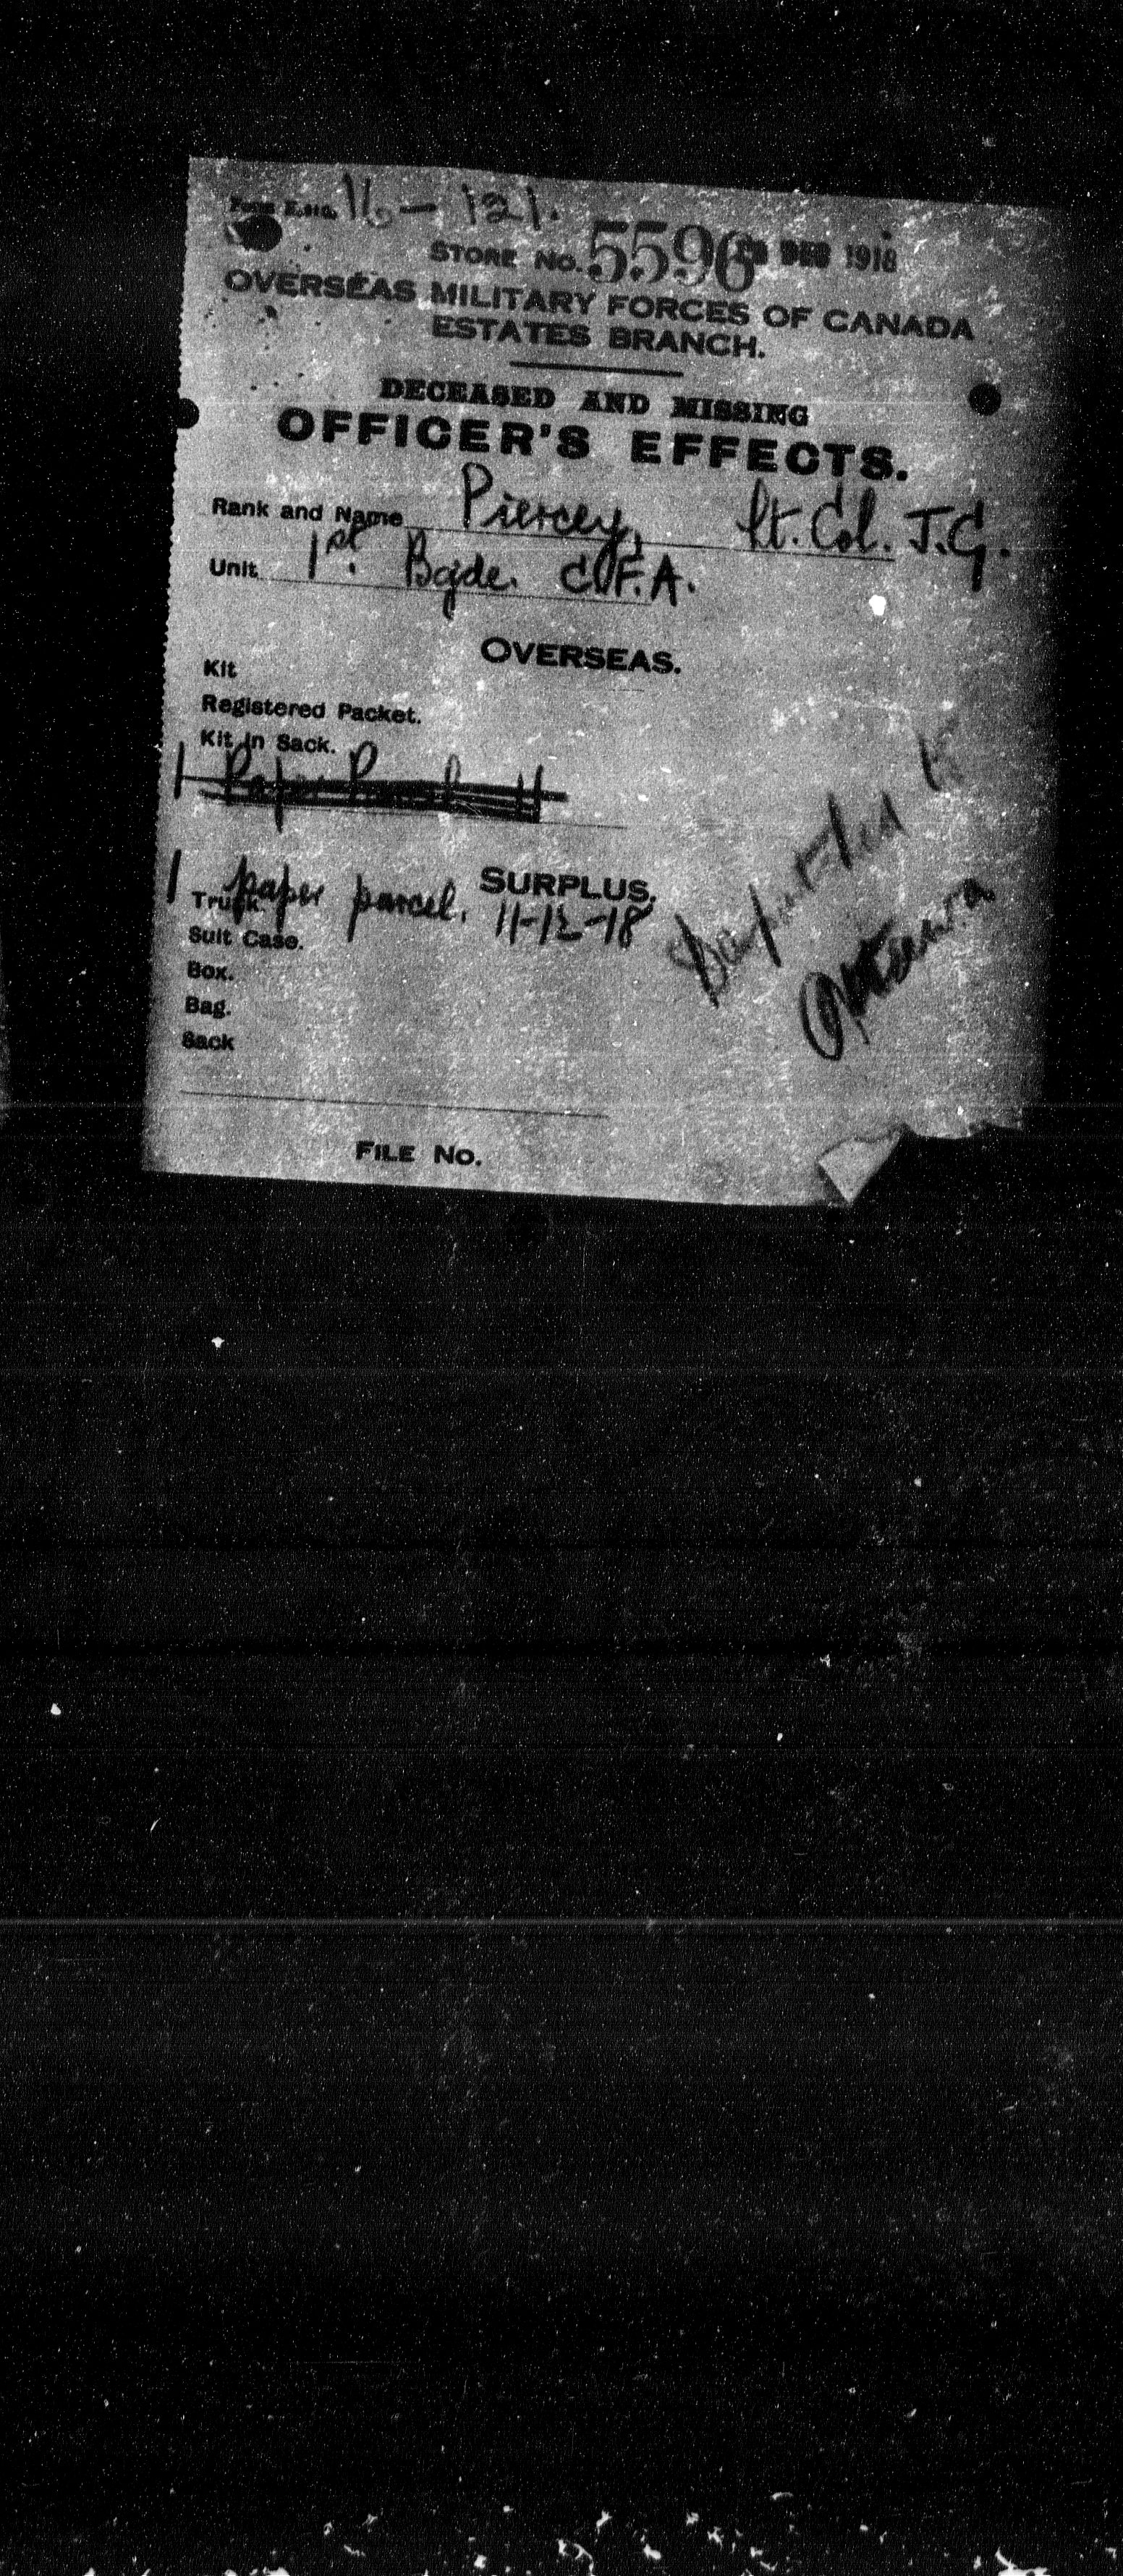 16 - 121.
STORE NO. 5596 DEC 1918
OVERSEAS MILITARY FORCES OF CANADA
ESTATES BRANCH.
DECEASED AND MISSING
OFFICER'S EFFECTS.
Rank and Name Piercey, Lt. Col. J.G.
Unit 1st. Bgde. C.F.A.
OVERSEAS.
Kit
Registered Packet.
Kit in Sack.
1 Paper Parcel
SURPLUS.
1 paper parcel. 11-12-18
Truck.
Suit Case.
Box.
Bag.
Sack
Despatched to
Ottawa
FILE NO.